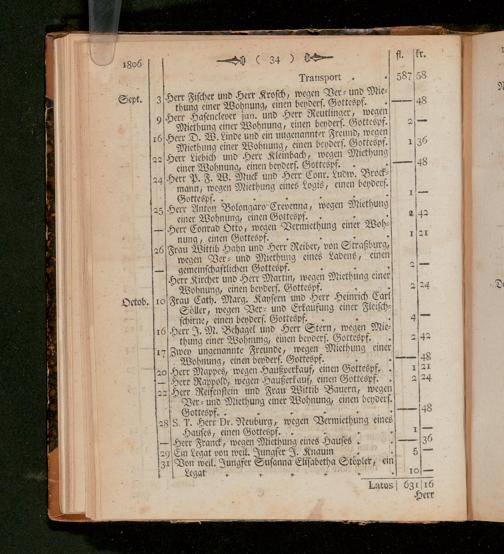 ( 34 )
1806 fl. kr.
Transport . . 587 58
Sept. 3 Herr Fischer und Herr Krosch, wegen Ver- und Mie-
thung einer Wohnung, einen beyders. Gottespf. — 48
9 Herr Hasenclever jun. und Herr Reutlinger, wegen
Miethung einer Wohnung, einen beyders. Gottespf. 2 —
16 Herr D. W. Linde und ein ungenannter Freund, wegen
Miethung einer Wohnung, einen beyders. Gottespf. 1 36
22 Herr Liebich und Herr Kleinbach, wegen Miethung
einer Wohnung, einen beyders. Gottespf. — 48
24 Herr P. F. W. Muck und Herr Conr. Ludw. Brock-
mann, wegen Miethung eines Logis, einen beyders.
Gottespf. . . . . 1 —
25 Herr Anton Bolongaro Crevenna, wegen Miethung
einer Wohnung, einen Gottespf. . . 2 42
— Herr Conrad Otto, wegen Vermiethung einer Woh-
nung, einen Gottespf. . . . 1 21
26 Frau Wittib Hahn und Herr Reiber, von Strasburg,
wegen Ver- und Miethung eines Ladens, einen
gemeinschaftlichen Gottespf. . . 2 —
— Herr Kircher und Herr Martin, wegen Miethung einer
Wohnung, einen beyders. Gottespf. . 2 24
Octob. 10 Frau Cath. Marg. Kaysern und Herr Heinrich Carl
Söller, wegen Ver- und Erkaufung einer Fleisch-
schirne, einen beyders. Gottespf. . . 4 —
16 Herr J. M. Behagel und Herr Stern, wegen Mie-
thung einer Wohnung, einen beyders. Gottespf. 2 42
17 Zwey ungenannte Freunde, wegen Miethung einer
Wohnung, einen beyders. Gottespf. . — 48
20 Herr Mappes, wegen Haußverkauf, einen Gottespf. . 1 21
— Herr Rappold, wegen Haußerkauf, einen Gottespf. . 2 24
22 Herr Reifenstein und Frau Wittib Bauern, wegen
Ver- und Miethung einer Wohnung, einen beyders.
Gottespf. . . . . — 48
28 S. T. Herr Dr. Neuburg, wegen Vermiethung eines
Hauses, einen Gottespf. . . . 1 —
— Herr Franck, wegen Miethung eines Hauses . — 36
29 Ein Legat von weil. Jungfer J. Knaum . 5 —
31 Von weil. Jungfer Susanna Elisabetha Stöpler, ein
Legat . . . . . 10 —
Latus 631 16
Herr